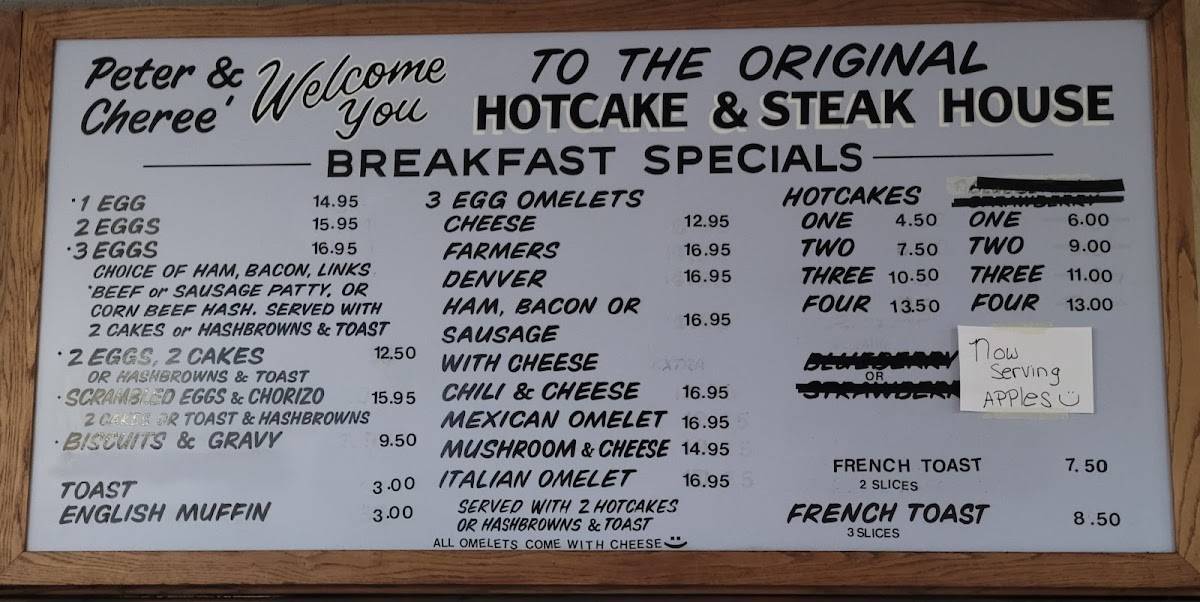 Peter & Cheree' Welcome You
TO THE ORIGINAL
HOTCAKE & STEAK HOUSE
BREAKFAST SPECIALS
1 EGG 14.95
2 EGGS 15.95
3 EGGS 16.95
CHOICE OF HAM, BACON, LINKS
BEEF or SAUSAGE PATTY, OR
CORN BEEF HASH. SERVED WITH
2 CAKES or HASHBROWNS & TOAST
2 EGGS, 2 CAKES 12.50
OR HASHBROWNS & TOAST
SCRAMBLED EGGS & CHORIZO 15.95
2 CAKES OR TOAST & HASHBROWNS
BISCUITS & GRAVY 9.50
TOAST 3.00
ENGLISH MUFFIN 3.00
3 EGG OMELETS
CHEESE 12.95
FARMERS 16.95
DENVER 16.95
HAM, BACON OR
SAUSAGE 16.95
WITH CHEESE
CHILI & CHEESE 16.95
MEXICAN OMELET 16.95
MUSHROOM & CHEESE 14.95
ITALIAN OMELET 16.95
SERVED WITH 2 HOTCAKES
OR HASHBROWNS & TOAST
ALL OMELETS COME WITH CHEESE
HOTCAKES
ONE 4.50
TWO 7.50
THREE 10.50
FOUR 13.50
BLUEBERRY
STRAWBERRY
ONE 6.00
TWO 9.00
THREE 11.00
FOUR 13.00
BLUEBERRY
OR
STRAWBERRY
Now
Serving
APPles
FRENCH TOAST 7.50
2 SLICES
FRENCH TOAST 8.50
3 SLICES